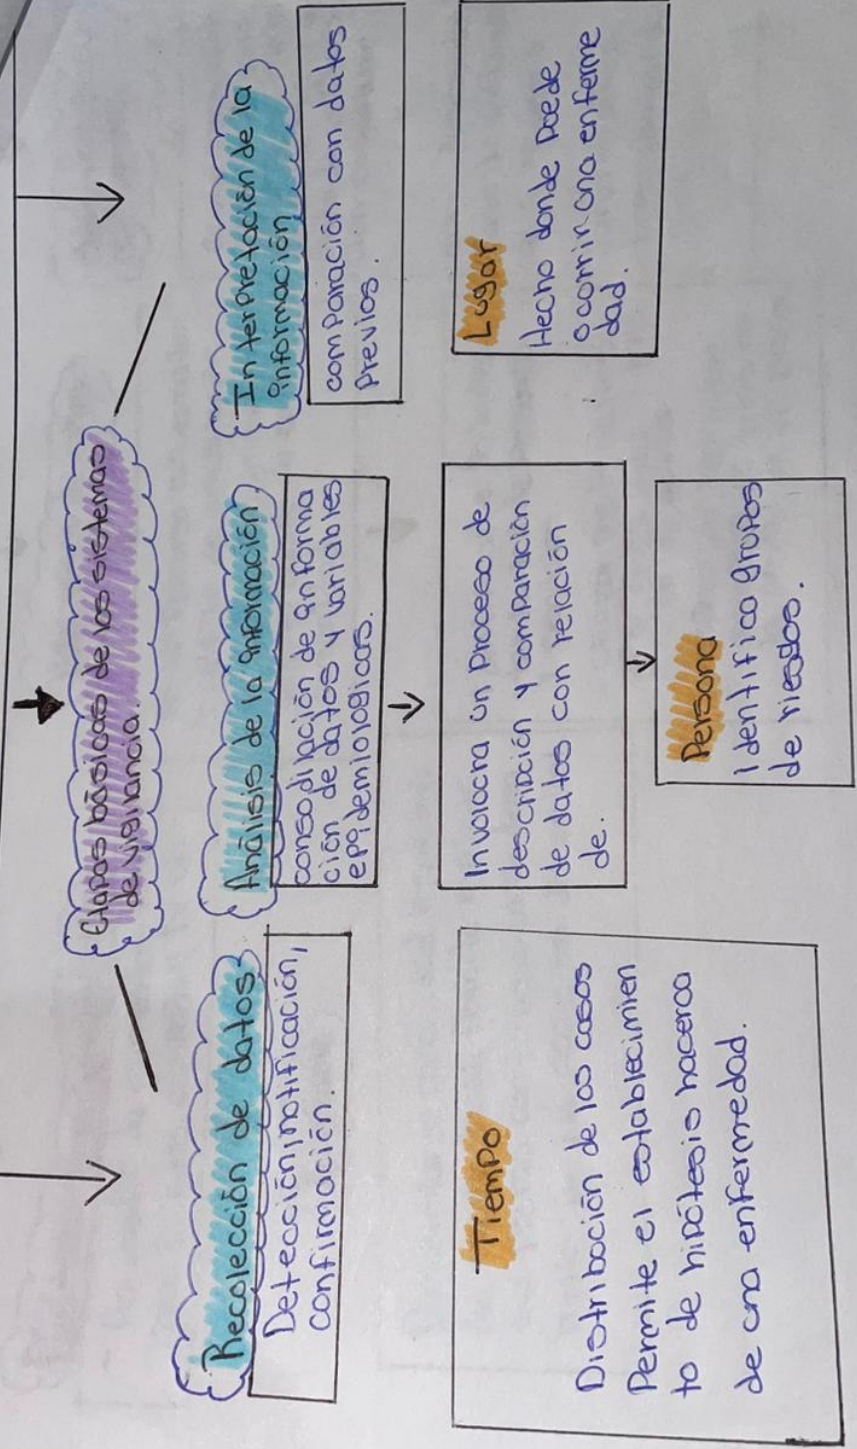 Etapas básicas de los sistemas
de vigilancia.
Recolección de datos
Detección, notificación,
confirmación.
Análisis de la información
consodilación de informa
ción de datos y variables
epidemiologicas.
Interpretación de la
información
comparación con datos
Previos.
Involocra un Proceso de
descripción y comparación
de datos con relación
de.
Tiempo
Distriboción de los casos
Permite el establecimien
to de hipótesis hacerca
de una enfermedad.
Persona
Identifica grupos
de riesgos.
Lugar
Hecho donde Puede
ocurrir una enferme
dad.